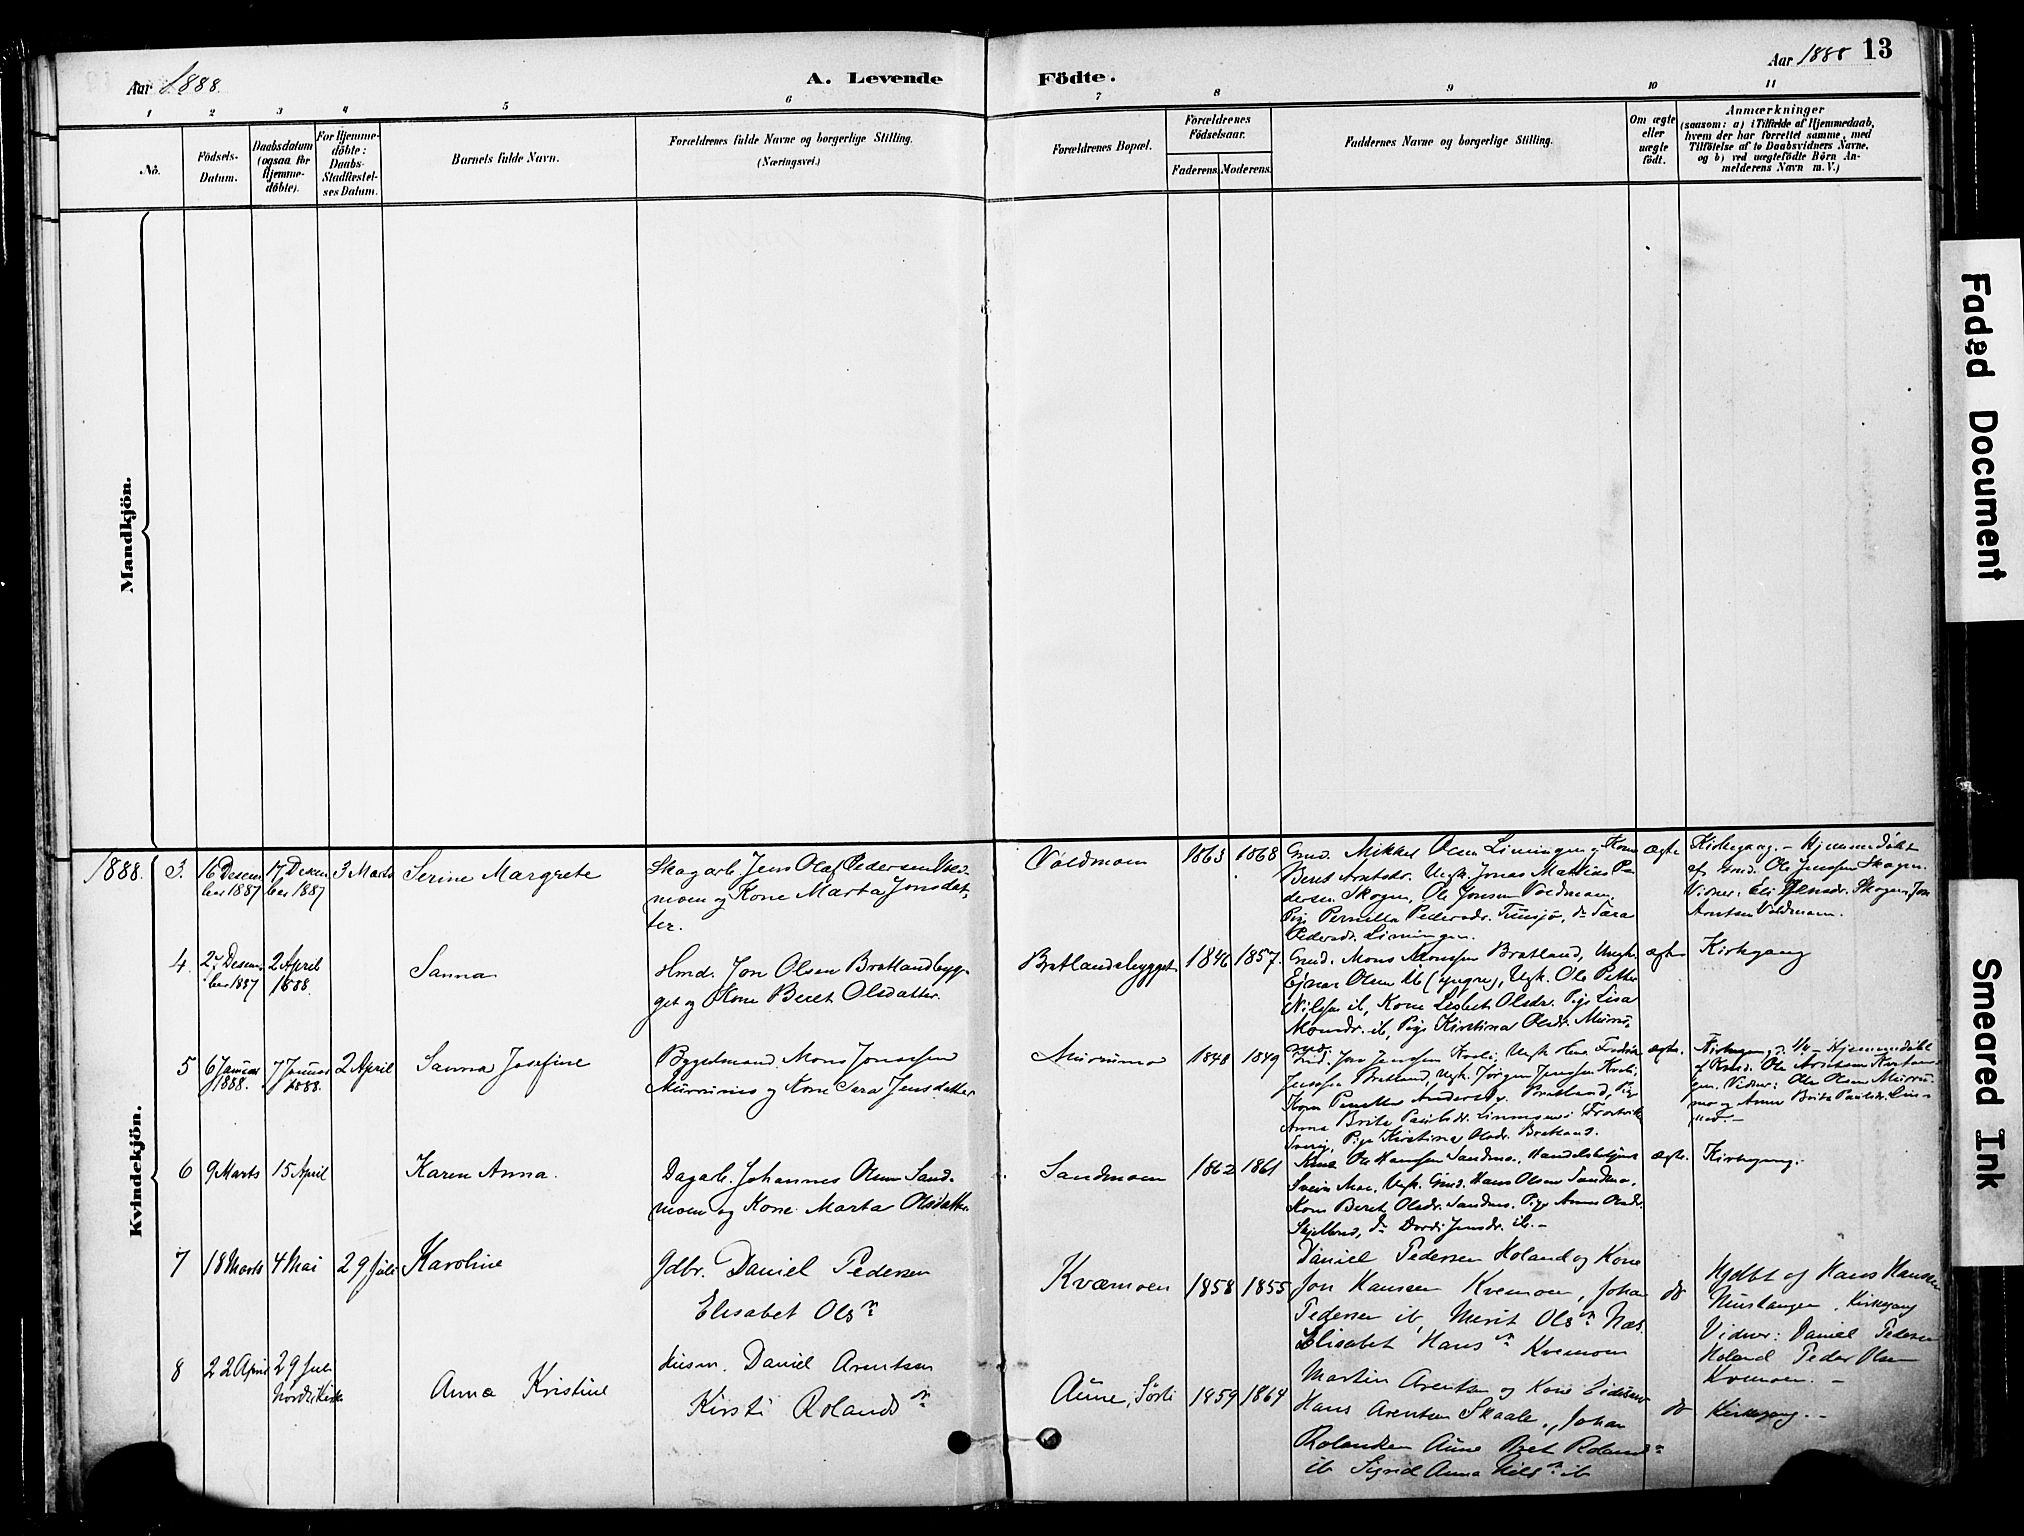 Aar 1888.
A. Levende
Födte.
Aar 1888 13
1 2 3 4 5 6 7 8 9 10 11
No.
Födsels-
Datum.
Daabsdatum
(ogsaa for
Hjemme-
döbte).
For Hjemme-
döbte:
Daabs-
Stadfæstel-
ses Datum.
Barnets fulde Navn.
Forældrenes fulde Navne og borgerlige Stilling.
(Næringsvei.)
Forældrenes Bopæl.
Forældrenes
Födselsaar.
Faderens. Moderens.
Faddernes Navne og borgerlige Stilling.
Om ægte
eller
uægte
födt.
Anmærkninger
(saasom: a) i Tilfælde af Hjemmedaab,
hvem der har forrettet samme, med
Tilföielse af to Daabsvidners Navne,
og b) ved uægtefödte Börn An-
melderens Navn m. V.)
Mandkjön.
Kvindekjön.
1888. 3.
16 Desem
ber 1887
17 Desem
ber 1887
3 Marts
Serine Margrete
Skogarb. Jens Olaf Pedersen Vold-
moen og Kone Marta Jonsdat-
ter.
Voldmoen
1863 1868
Gmd. Mikkel Olsen Limingen og Kone
Beret Arntsdr. Ungk. Jonas Mathias Pe-
dersen Skogen, Ole Jonsen Voldmoen.
Pige Pernella Pedersdr. Tunsjø, do Sara
Pedersdr. Limingen.
ægte
Kirkegang. - Hjemmedøbt
af Gmd. Ole Jenssen Skogen.
Vidner: Eli Jensdr. Skogen, Jon
Arntsen Voldmoen.
4.
Desem
ber 1887
2 April
1888.
Sanna
Hmd. Jon Olsen Bratlandbyg-
get og Kone Beret Olsdatter.
Bratlandsbygget
1846 1857.
Gmd. Mons Monssen Bratland, Ungk.
Ejnar Olsen ib (yngre), Ungk. Ole Petter
Nilssen ib, Kone Lisbet Olsdr. Pige Lisa
Monsdr. ib, Pige Kirstina Olsdr. Murru-
mo.
ægte
Kirkegang
5
6 Januar
1888.
7 Januar
1888.
2 April
Sanna Josefine
Byggelmand Mons Jonassen
Murrumo og Kone Sara Jensdatter
Murrumo
1848 1849
Jenssen Bratland, Ungk. Jørgen Jenssen Kveli,
Kone Pernella Andersdr. Bratland, Pig
Anna Brita Paulsdr.
Pige Kirstina Olsdr. Bratland.
ægte.
Hjemmedøbt
af Kmd. Ole Arntsen
Vidner: Ole Olsen Murru-
mo og Anna Brita Paulsdr.
6
9 Marts
15 April
Karen Anna.
Dagarb. Johannes Olsen Sand-
moen og Kone Marta Olsdatter.
Sandmoen
1862 1861
Ole Hanssen Sandmo, Handelsbetjent
Svein Moe, Ungk. Gmd. Hans Olsen Sandmo,
Kone Beret Olsdr. Sandmo, Pige Anna Olsdr.
do Dordi Jensdr. ib. -
ægte.
Kirkegang.
7
18 Marts
4 Mai
29 Juli
Karoline
Gdbr. Daniel Pedersen
Elisabet Olsdr
Kvæmoen
1858 1855
Daniel Pedersen Holand og Kone
Jon Hansen Kvemoen, Johan
Pedersen ib, Merit Olsdr Næs.
Elisabet Hansdr Kvemoen
do
Hjdbt af Hans Hansen
Kirkegang
Vidner: Daniel Pedersen
Holand Peder Olsen
Kvemoen. -
8
22 April
29 Juli
Nordli Kirke
Anna Kristine
Husm. Daniel Arentsen
Kirsti Rolandsdr
Aune, Sørli
1859 1864
Martin Arentsen og Kone
Hans Arentsen Skaale, Johan
Rolandsen Aune Beret Rolandsdr
ib Sigrid Anna Nilsdr ib
do
Kirkegang. -
Faded Document
Smeared Ink